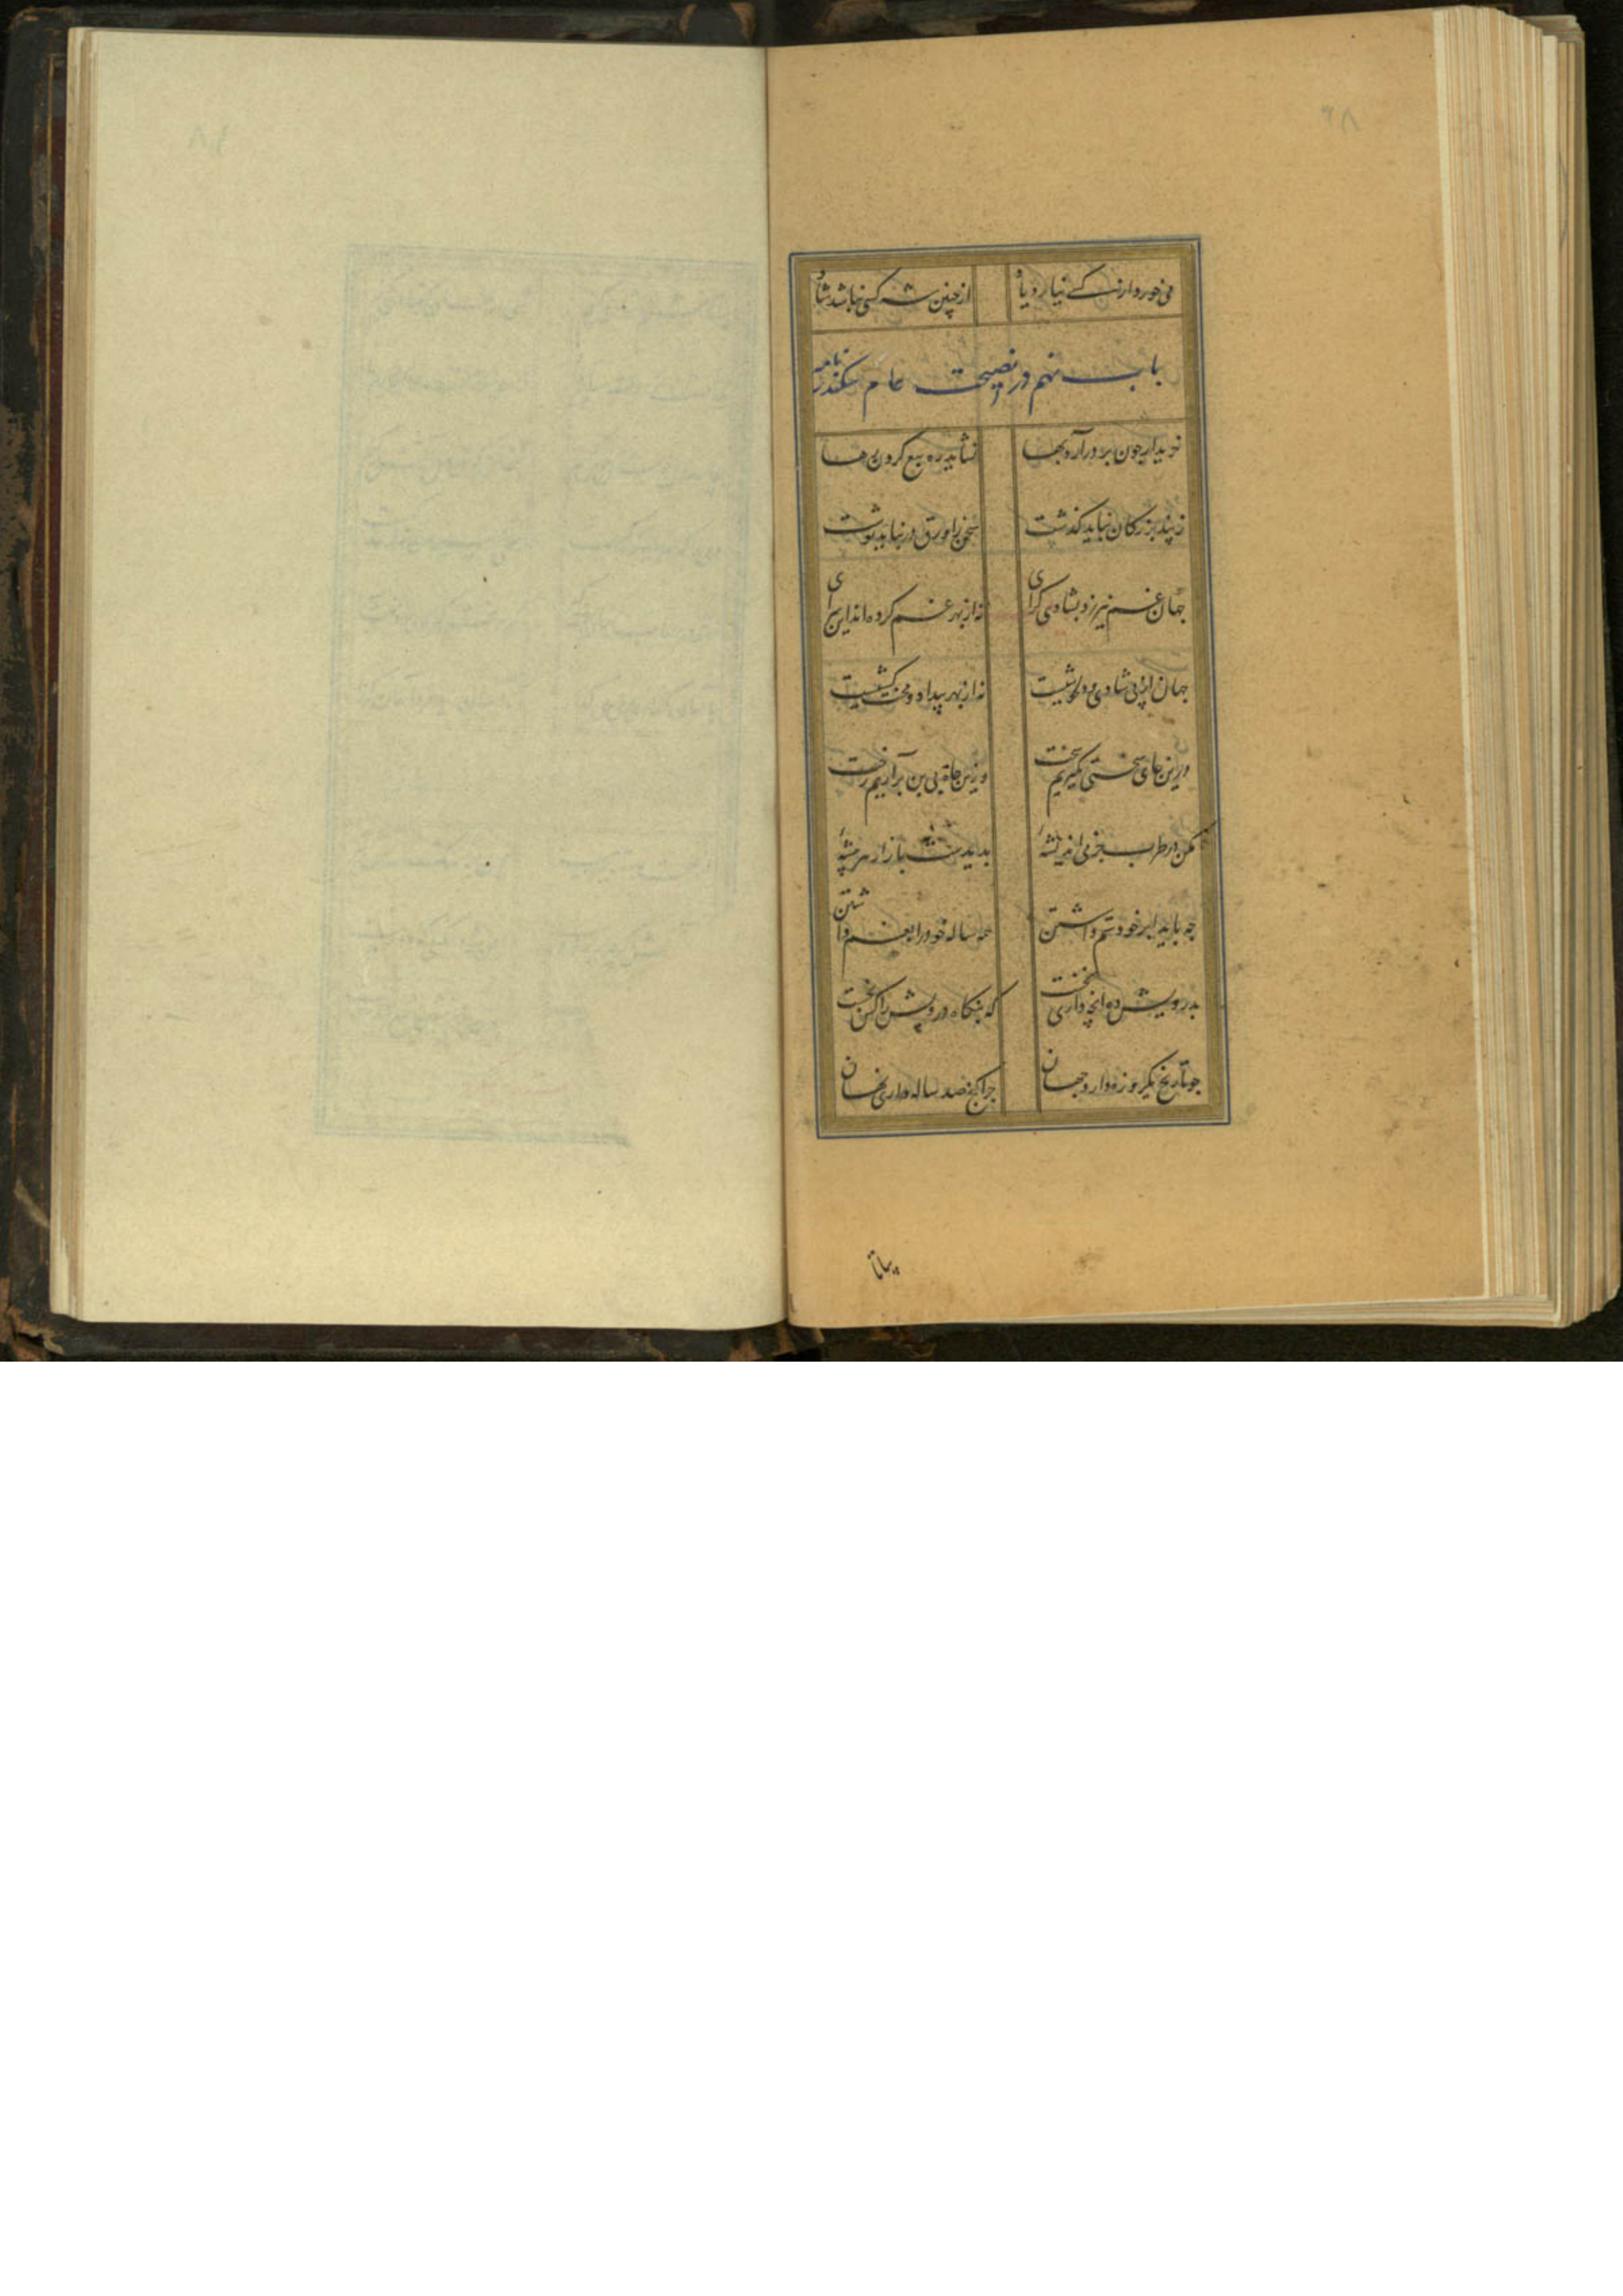 می خورد وز کسی نیارد یاد از چنین شه کسی نباشد شاد
باب نهم در نصیحت عام سکندرنامه
خریدار چون بر در آرد بها نشاید ره بیع کردن رها
ز پند بزرکان نباید کذشت سخن را ورق در نباید نوشت
جهان غم نیرزد بشادی کرای نه از بهر غم کرده‌اند این سرای
جهان از پی شادی و دلخوشیست نه از بهر بیداد و محنت کشیست
درین جای سختی نکیریم سخت وزین چاه بی بن برآریم رخت
مکن در طرب جز می اندیشه پدیدست بازار هر پیشه
چه باید بر خود ستم داشتن همه ساله خود را بغم داشتن
بدرویش ده آنچه داری نخست که بنکاه درویش را کس نجست
چو تاریخ یکروزه دارد جهان چرا کنج صد ساله داری نهان
۶۸
بیا تا